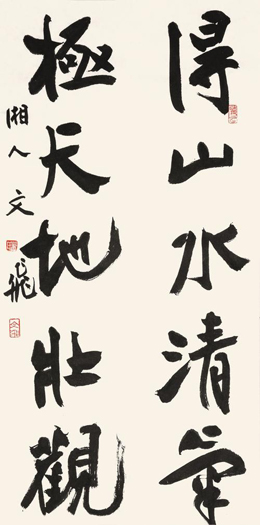 得山水清氣
極天地壯觀
湘人文飛